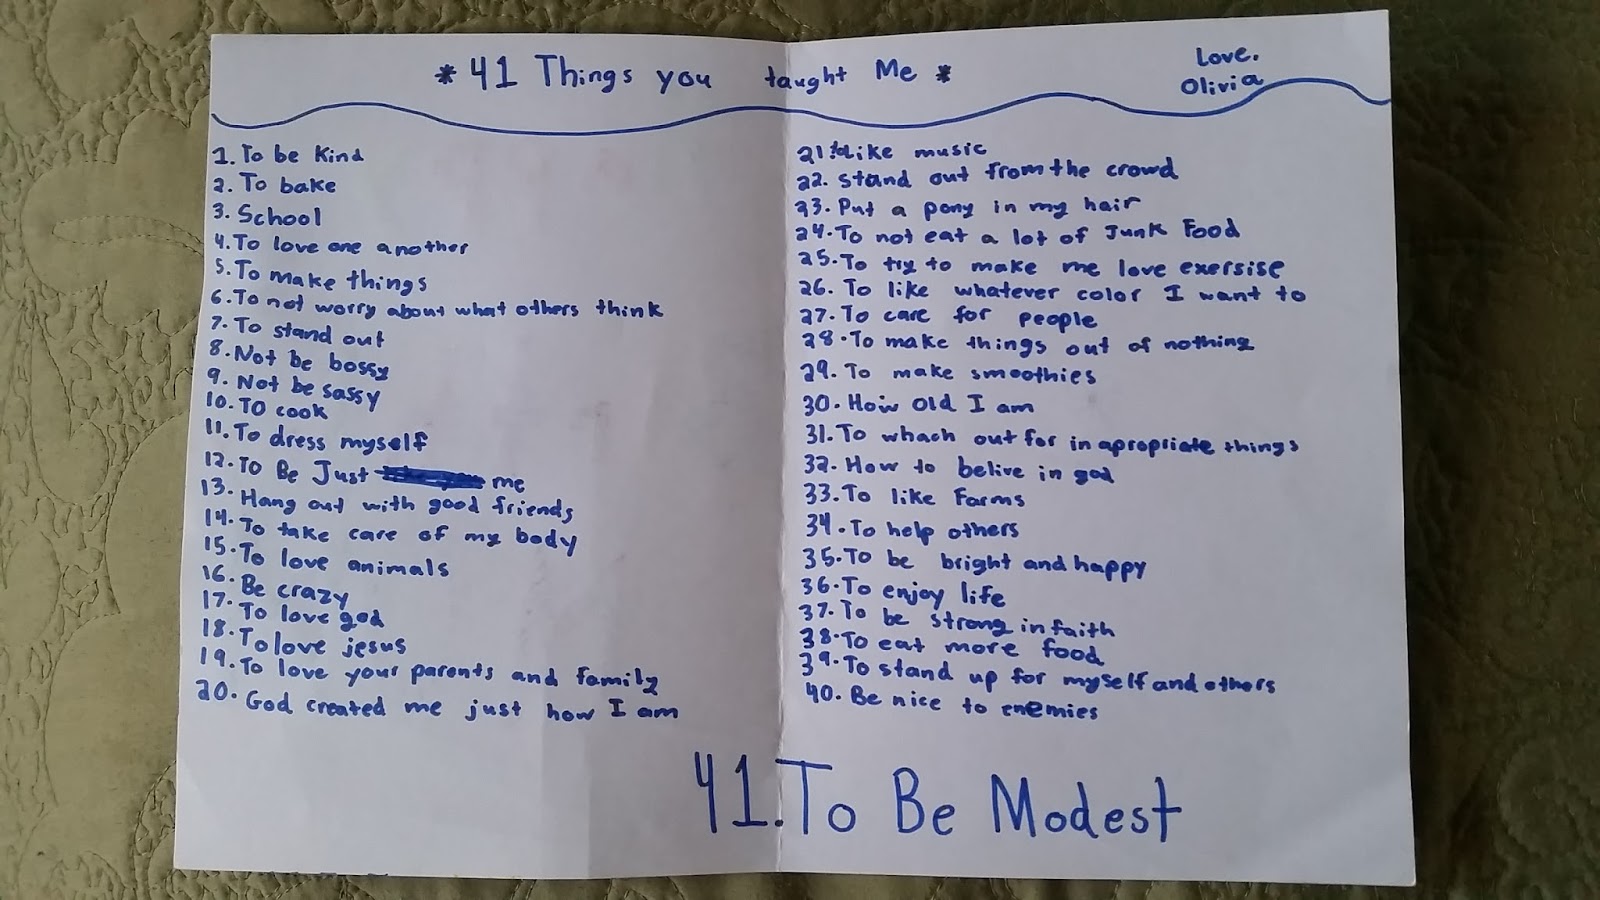 * 41 Things you taught Me *
Love,
Olivia
1. To be Kind
2. To bake
3. School
4. To love one another
5. To make things
6. To not worry about what others think
7. To stand out
8. Not be bossy
9. Not be sassy
10. TO cook
11. To dress myself
12. To Be Just me
13. Hang out with good friends
14. To take care of my body
15. To love animals
16. Be crazy
17. To love god
18. To love jesus
19. To love your parents and family
20. God created me just how I am
21. to Like music
22. stand out from the crowd
23. Put a pony in my hair
24. To not eat a lot of Junk Food
25. To try to make me love exersise
26. To like whatever color I want to
27. To care for people
28. To make things out of nothing
29. To make smoothies
30. How old I am
31. To whach out for in apropriate things
32. How to belive in god
33. To like Farms
34. To help others
35. To be bright and happy
36. To enjoy life
37. To be strong in faith
38. To eat more food
39. To stand up for myself and others
40. Be nice to enemies
41. To Be Modest